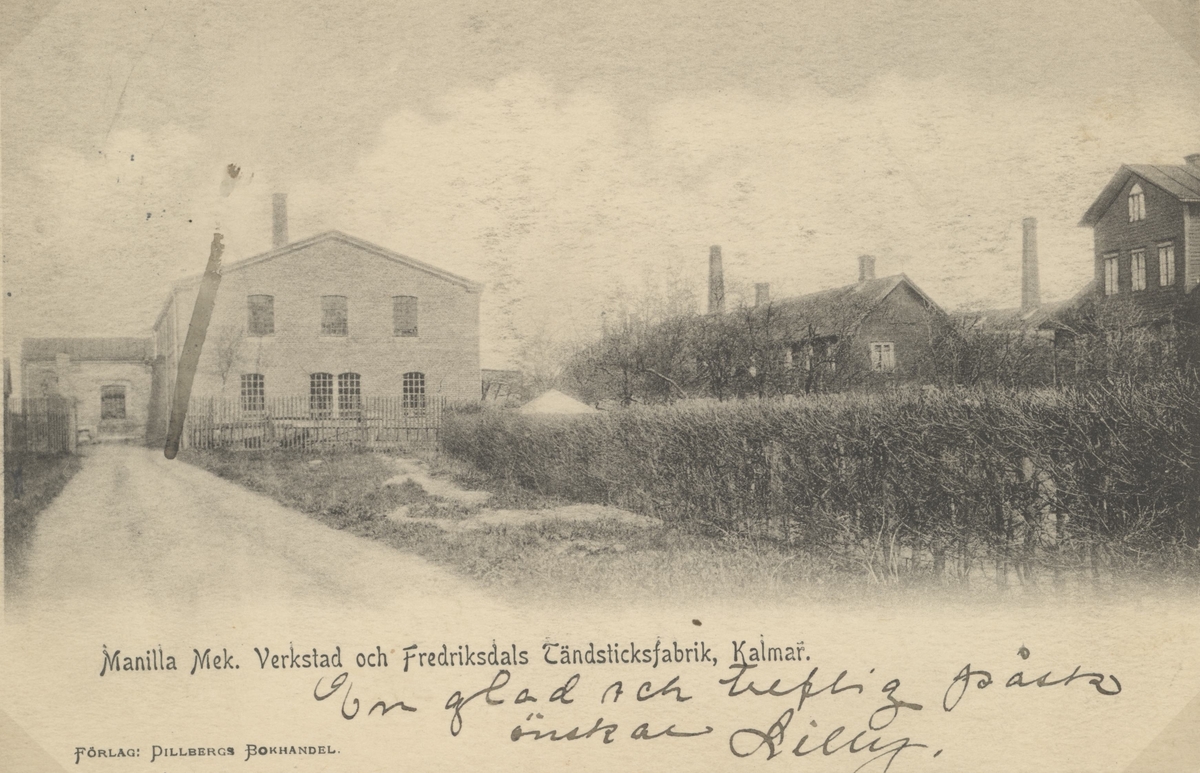 Manilla Mek. Verkstad och Fredriksdals Tändsticksfabrik, Kalmar.
En glad och treflig påsk
önskar Lilly.
Förlag: Dillbergs Bokhandel.